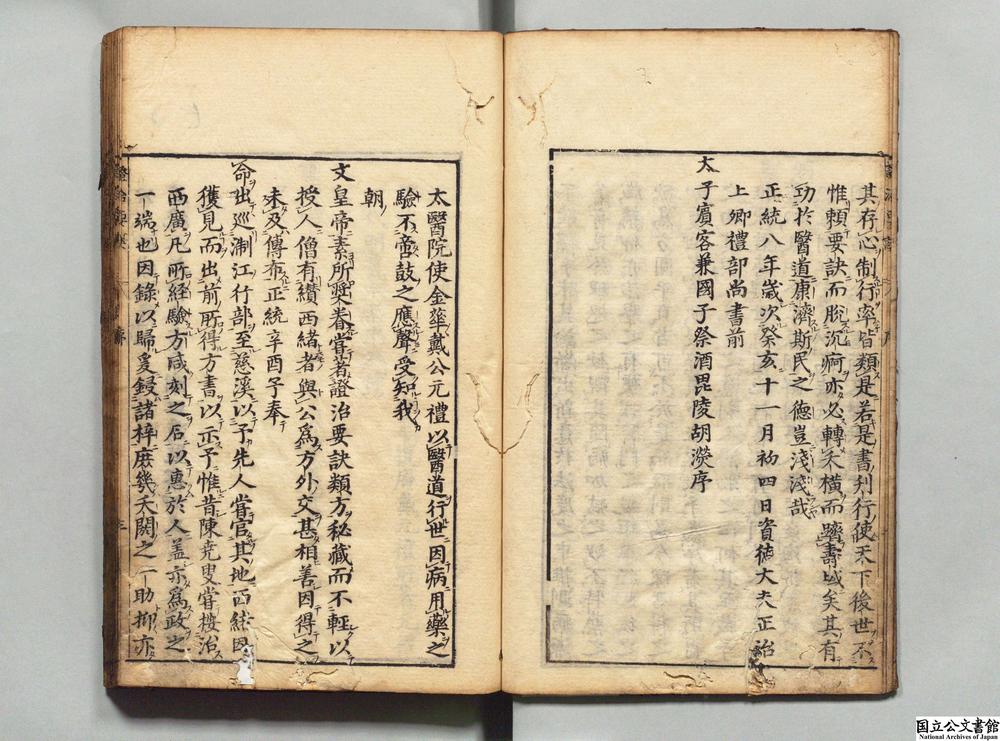 其存心制行率皆類是若是書刋行使天下後世不
惟賴要訣而脫沉痾亦必轉夭橫而躋壽域矣其有
功於醫道康濟斯民之德豈淺淺哉
正統八年歲次癸亥十一月初四日資德大夫正治
上卿禮部尚書前
太子賓客兼國子祭酒毘陵胡濙序
太醫院使金華戴公元禮以醫道行世因病用藥之
驗不啻鼓之應聲受知我
朝
文皇帝素所奬眷嘗著證治要訣類方秘藏而不輕以
授人僧有纘西緒者與公爲方外交甚相善因得之
未及傳布正統辛酉予奉
命出巡淛江行部至慈溪以予先人嘗官其地西緒因
獲見而出前所得方書以示予惟昔陳堯叟嘗按治
西廣凡所經驗方咸刻之石以惠於人盖亦爲政之
一端也因錄以歸爰鋟諸梓庶幾夭閼之一助抑亦
国立公文書館
National Archives of Japan